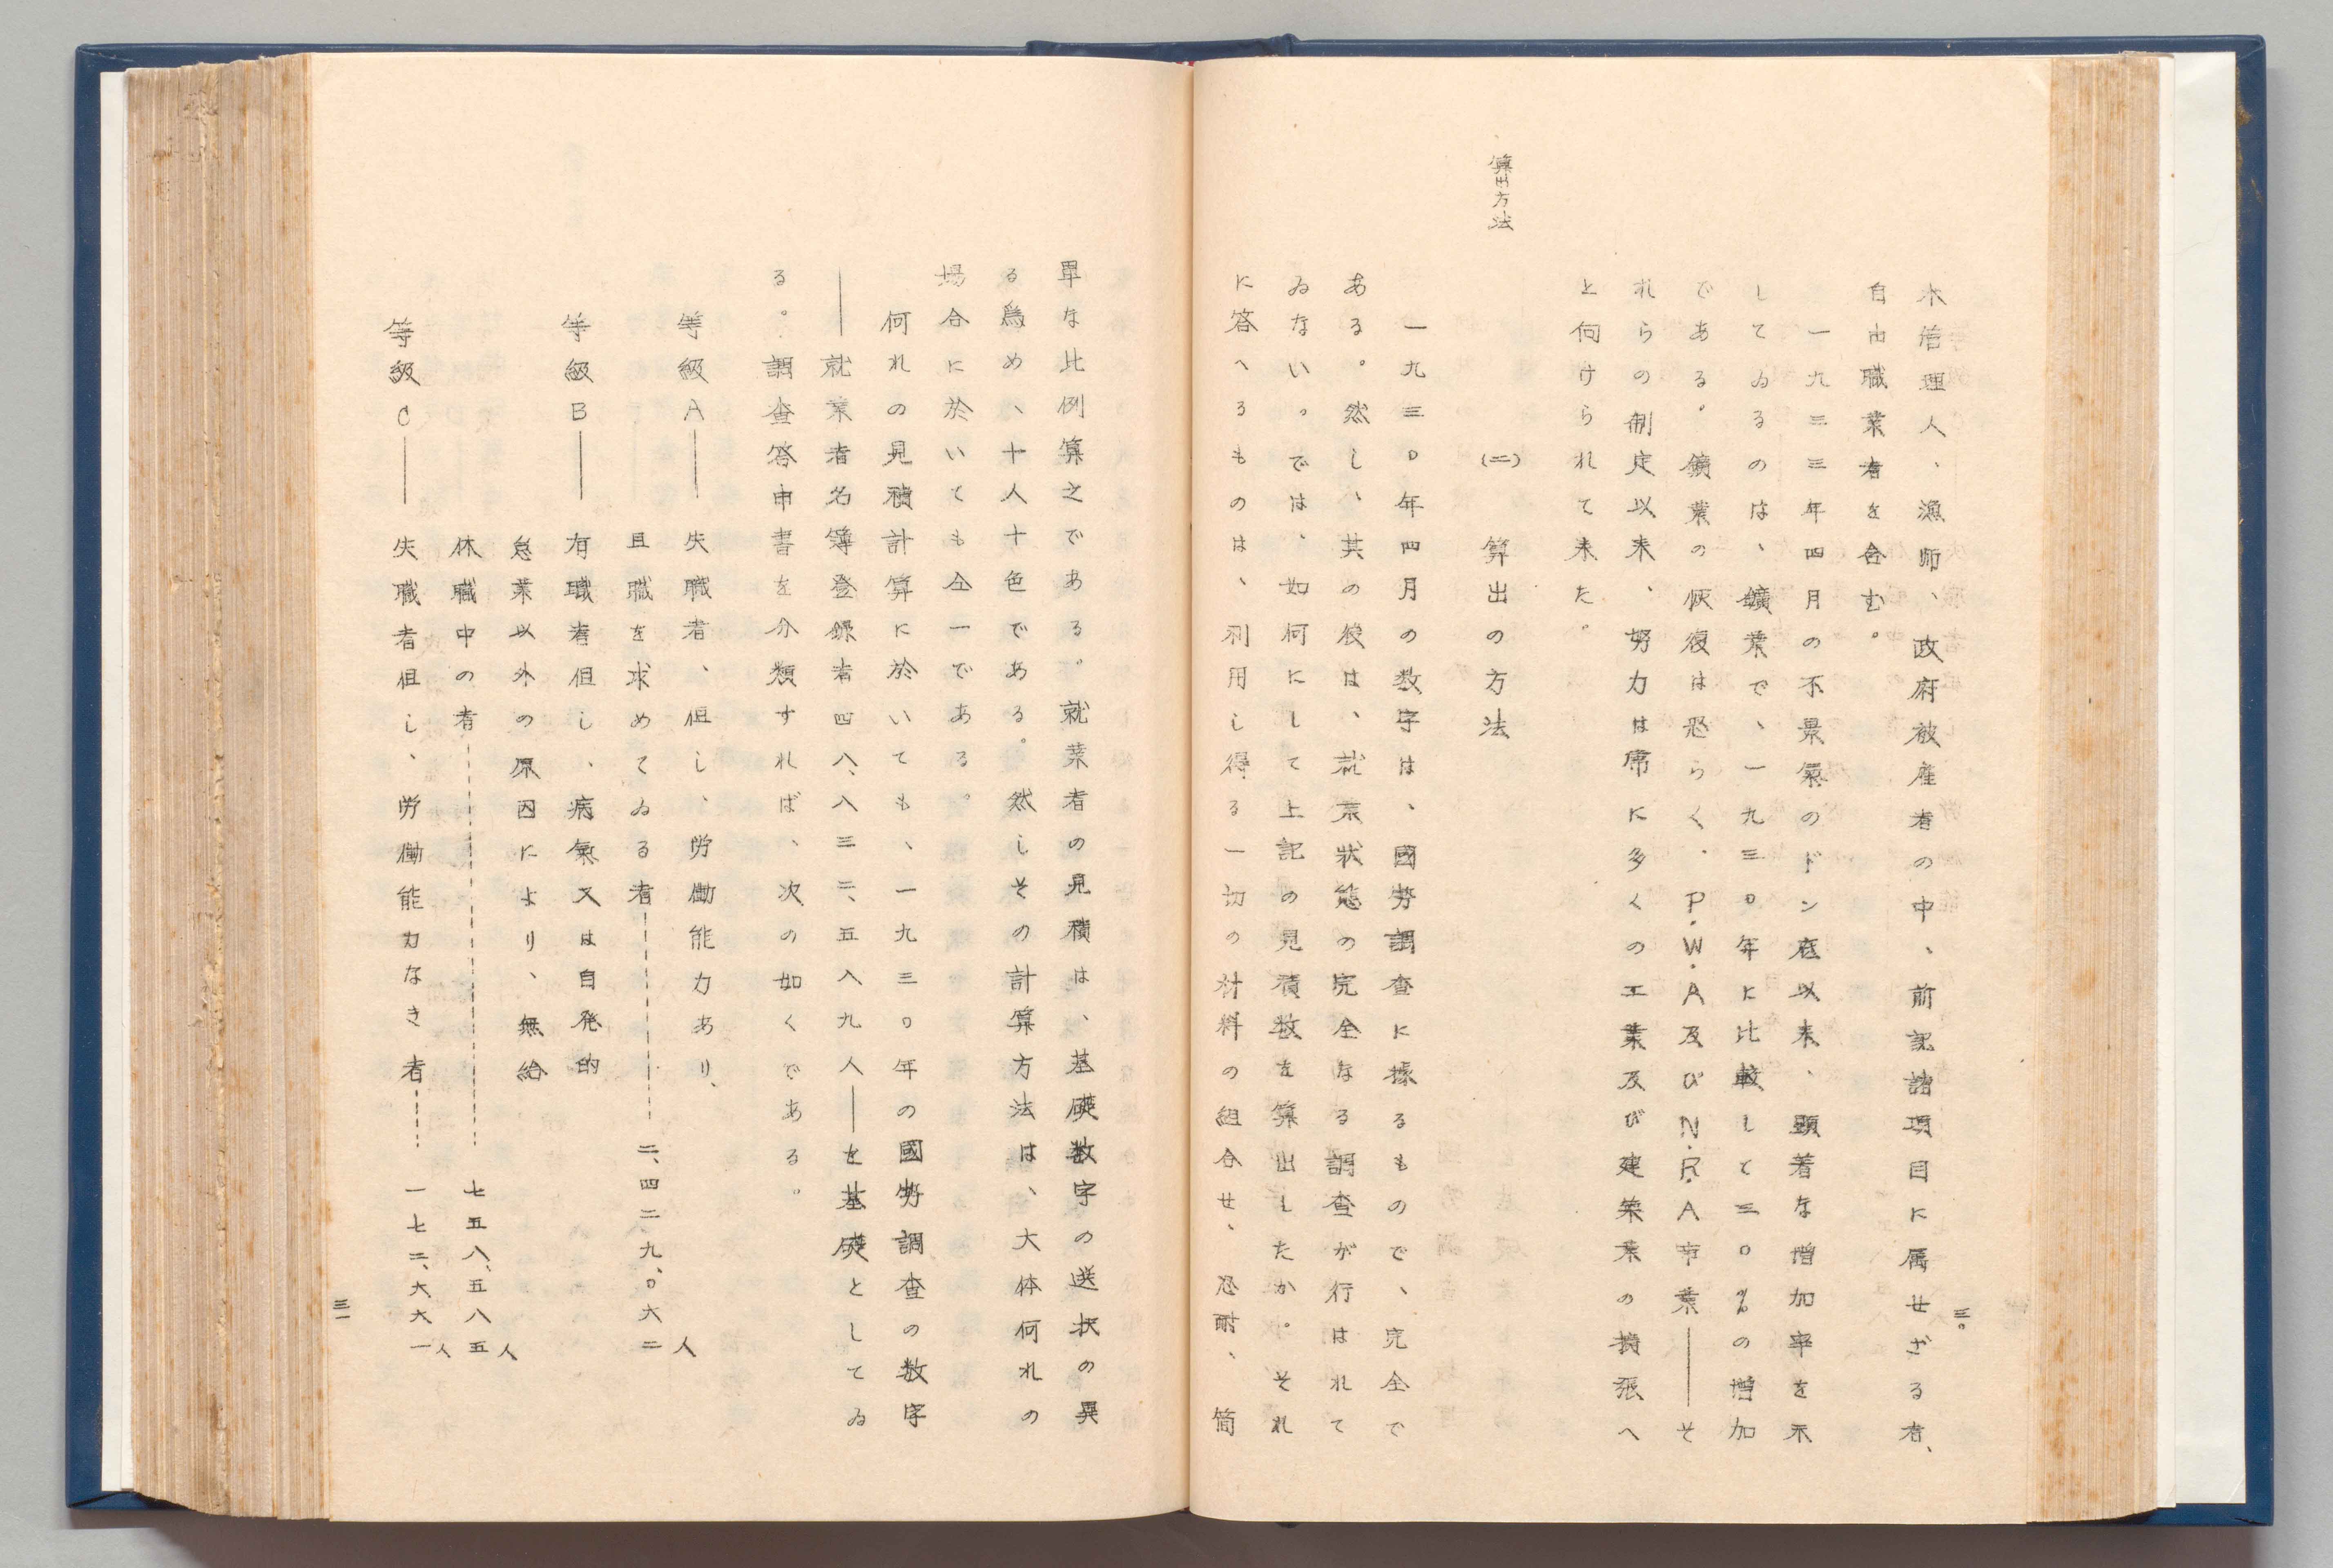 木管理人、漁師、政府被産者の中、前記諸項目に属せざる者、
自由職業者を含む。
一九三三年四月の不景氣のドン底以来、顕着な増加率を示
してゐるのは、鑛業で、一九三〇年に比較して三〇%の増加
である。鑛業の恢復は恐らく、P.W.A及びN.R.A事業――そ
れらの制定以来、努力は席に多くの工業及び建築業の擴張へ
と向けられて来た。
算出方法
(二)　算出の方法
一九三〇年四月の数字は、國勞調査に據るもので、完全で
ある。然し、其の後は、就業狀態の完全なる調査が行はれて
ゐない。では、如何にして上記の見積数を算出したか。それ
に答へるものは、利用し得る一切の材料の組合せ、忍耐、簡
三〇
單な比例算之である。就業者の見積は、基礎数字の送状の異
る爲め、十人十色である。然しその計算方法は、大体何れの
場合に於いても仝一である。
何れの見積計算に於いても、一九三〇年の國勞調査の数字
――就業者名簿登録者四八、八三二、五八九人――を基礎としてゐ
る。調査答申書を分類すれば、次の如くである。
等級A――失職者、但し、労働能力あり、
且職を求めてゐる者……二、四二九、〇六二人
等級B――有職者但し、病氣又は自発的
怠業以外の原因により、無給
休職中の者……七五八、五八五人
等級C――失職者但し、労働能力なき者……一七二、六六一人
三一